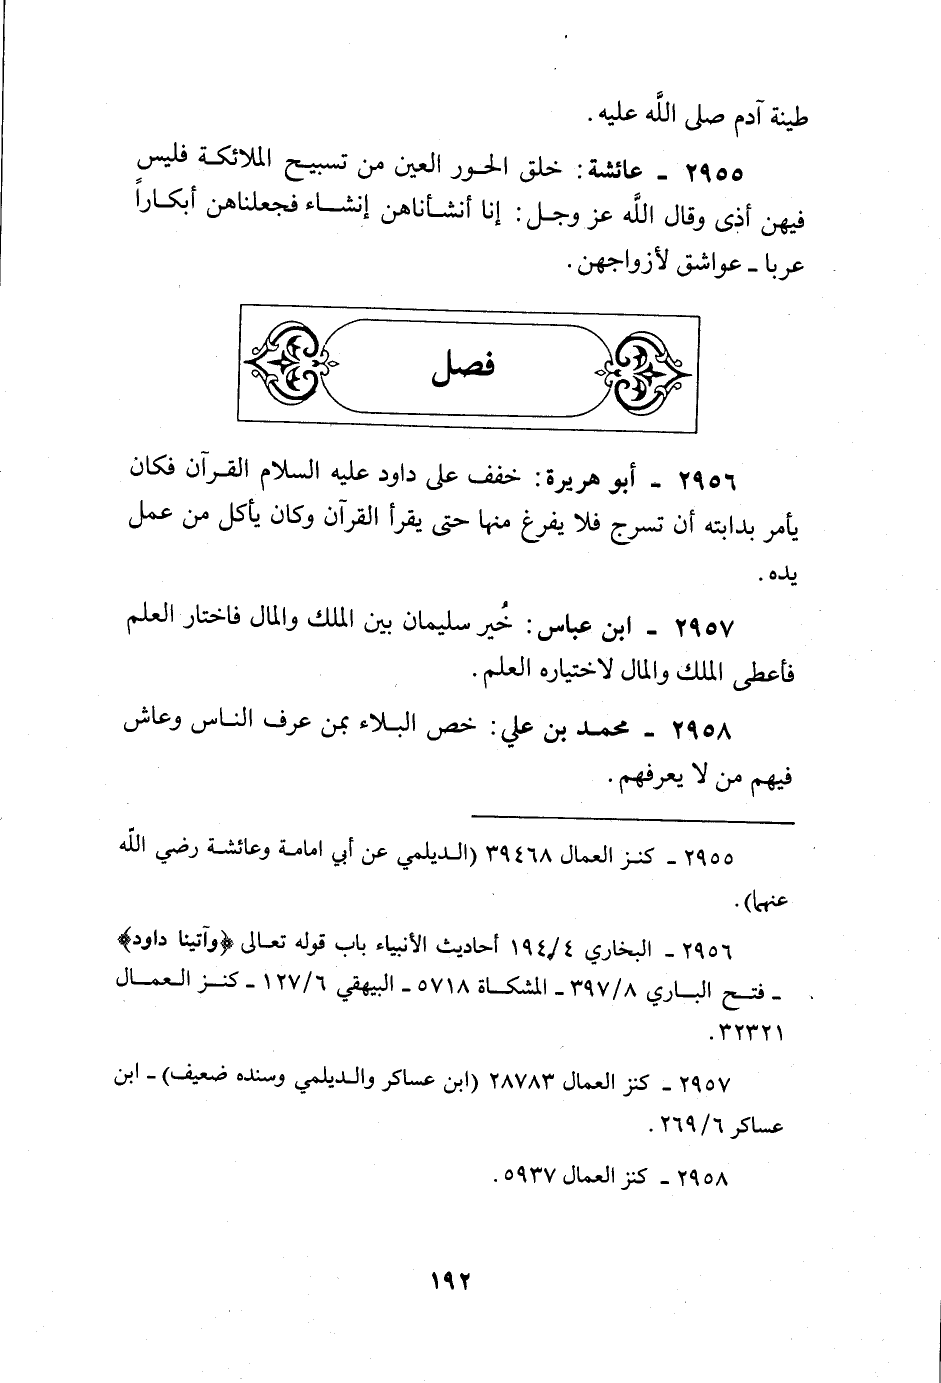 طينة آدم صلى اللَّه عليه.
٢٩٥٥ ـ عائشة: خلق الحور العين من تسبيح الملائكة فليس
فيهن أذى وقال اللَّه عز وجل: إنا أنشأناهن إنشاء فجعلناهن أبكاراً
عربا ـ عواشق لأزواجهن.
فصل
٢٩٥٦ ـ أبو هريرة: خفف على داود عليه السلام القرآن فكان
يأمر بدابته أن تسرج فلا يفرغ منها حتى يقرأ القرآن وكان يأكل من عمل
يده.
٢٩٥٧ ـ ابن عباس: خُير سليمان بين الملك والمال فاختار العلم
فأعطى الملك والمال لاختياره العلم.
٢٩٥٨ ـ محمد بن علي: خص البلاء بمن عرف الناس وعاش
فيهم من لا يعرفهم.
٢٩٥٥ ـ كنز العمال ٣٩٤٦٨ (الديلمي عن أبي امامة وعائشة رضي اللَّه
عنهما).
٢٩٥٦ ـ البخاري ١٩٤/٤ أحاديث الأنبياء باب قوله تعالى ﴿وآتينا داود﴾
ـ فتح الباري ٣٩٧/٨ ـ المشكاة ٥٧١٨ ـ البيهقي ١٢٧/٦ ـ كنز العمال
٣٢٣٢١.
٢٩٥٧ ـ كنز العمال ٢٨٧٨٣ (ابن عساكر والديلمي وسنده ضعيف) ـ ابن
عساكر ٢٦٩/٦.
٢٩٥٨ ـ كنز العمال ٥٩٣٧.
١٩٢